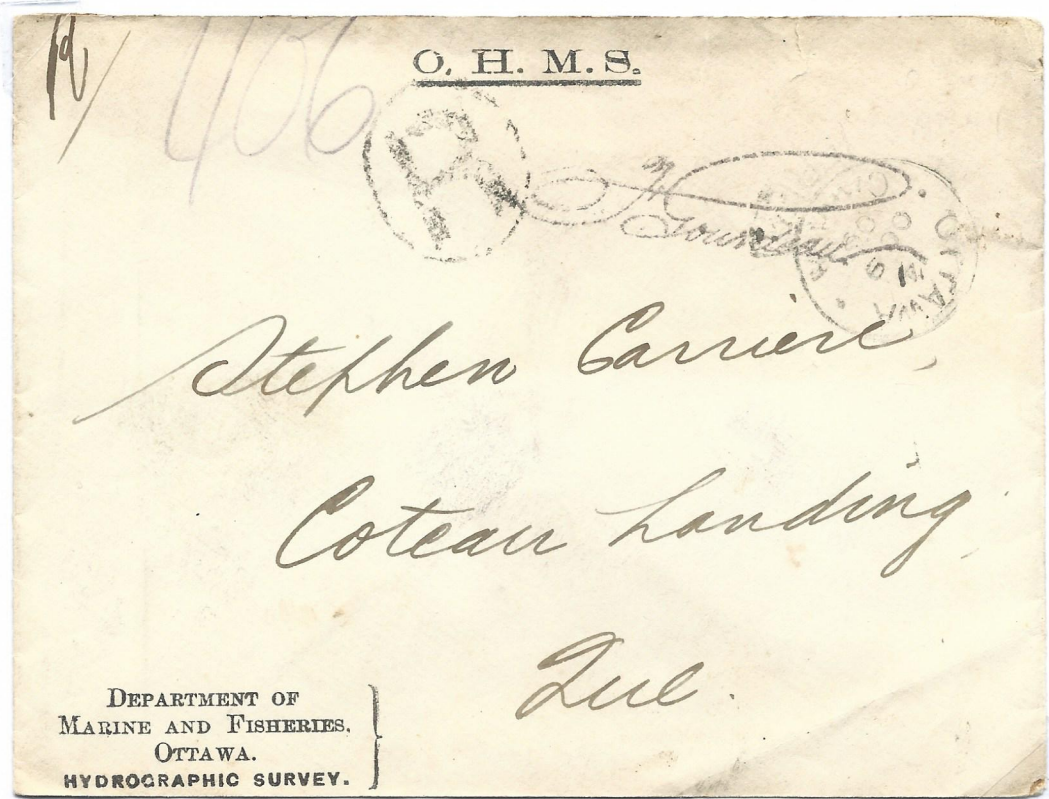 406
O. H. M. S.
R
OTTAWA
Stephen Carriere,
Coteau Landing,
Que.
DEPARTMENT OF
MARINE AND FISHERIES.
OTTAWA.
HYDROGRAPHIC SURVEY.